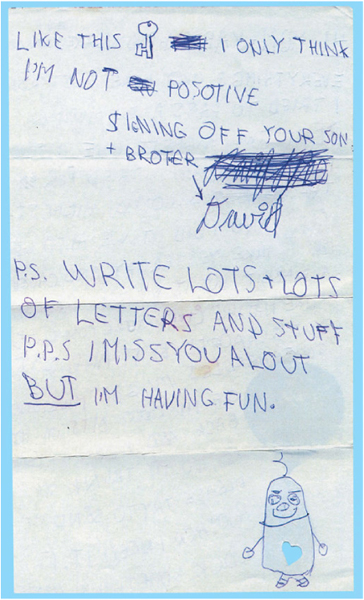 LIKE THIS I ONLY THINK
I'M NOT POSOTIVE
SIGNING OFF YOUR SON
+ BROTER
David
P.S. WRITE LOTS + LOTS
OF LETTERS AND STUFF
P.P.S I MISS YOU A LOUT
BUT I'M HAVING FUN.